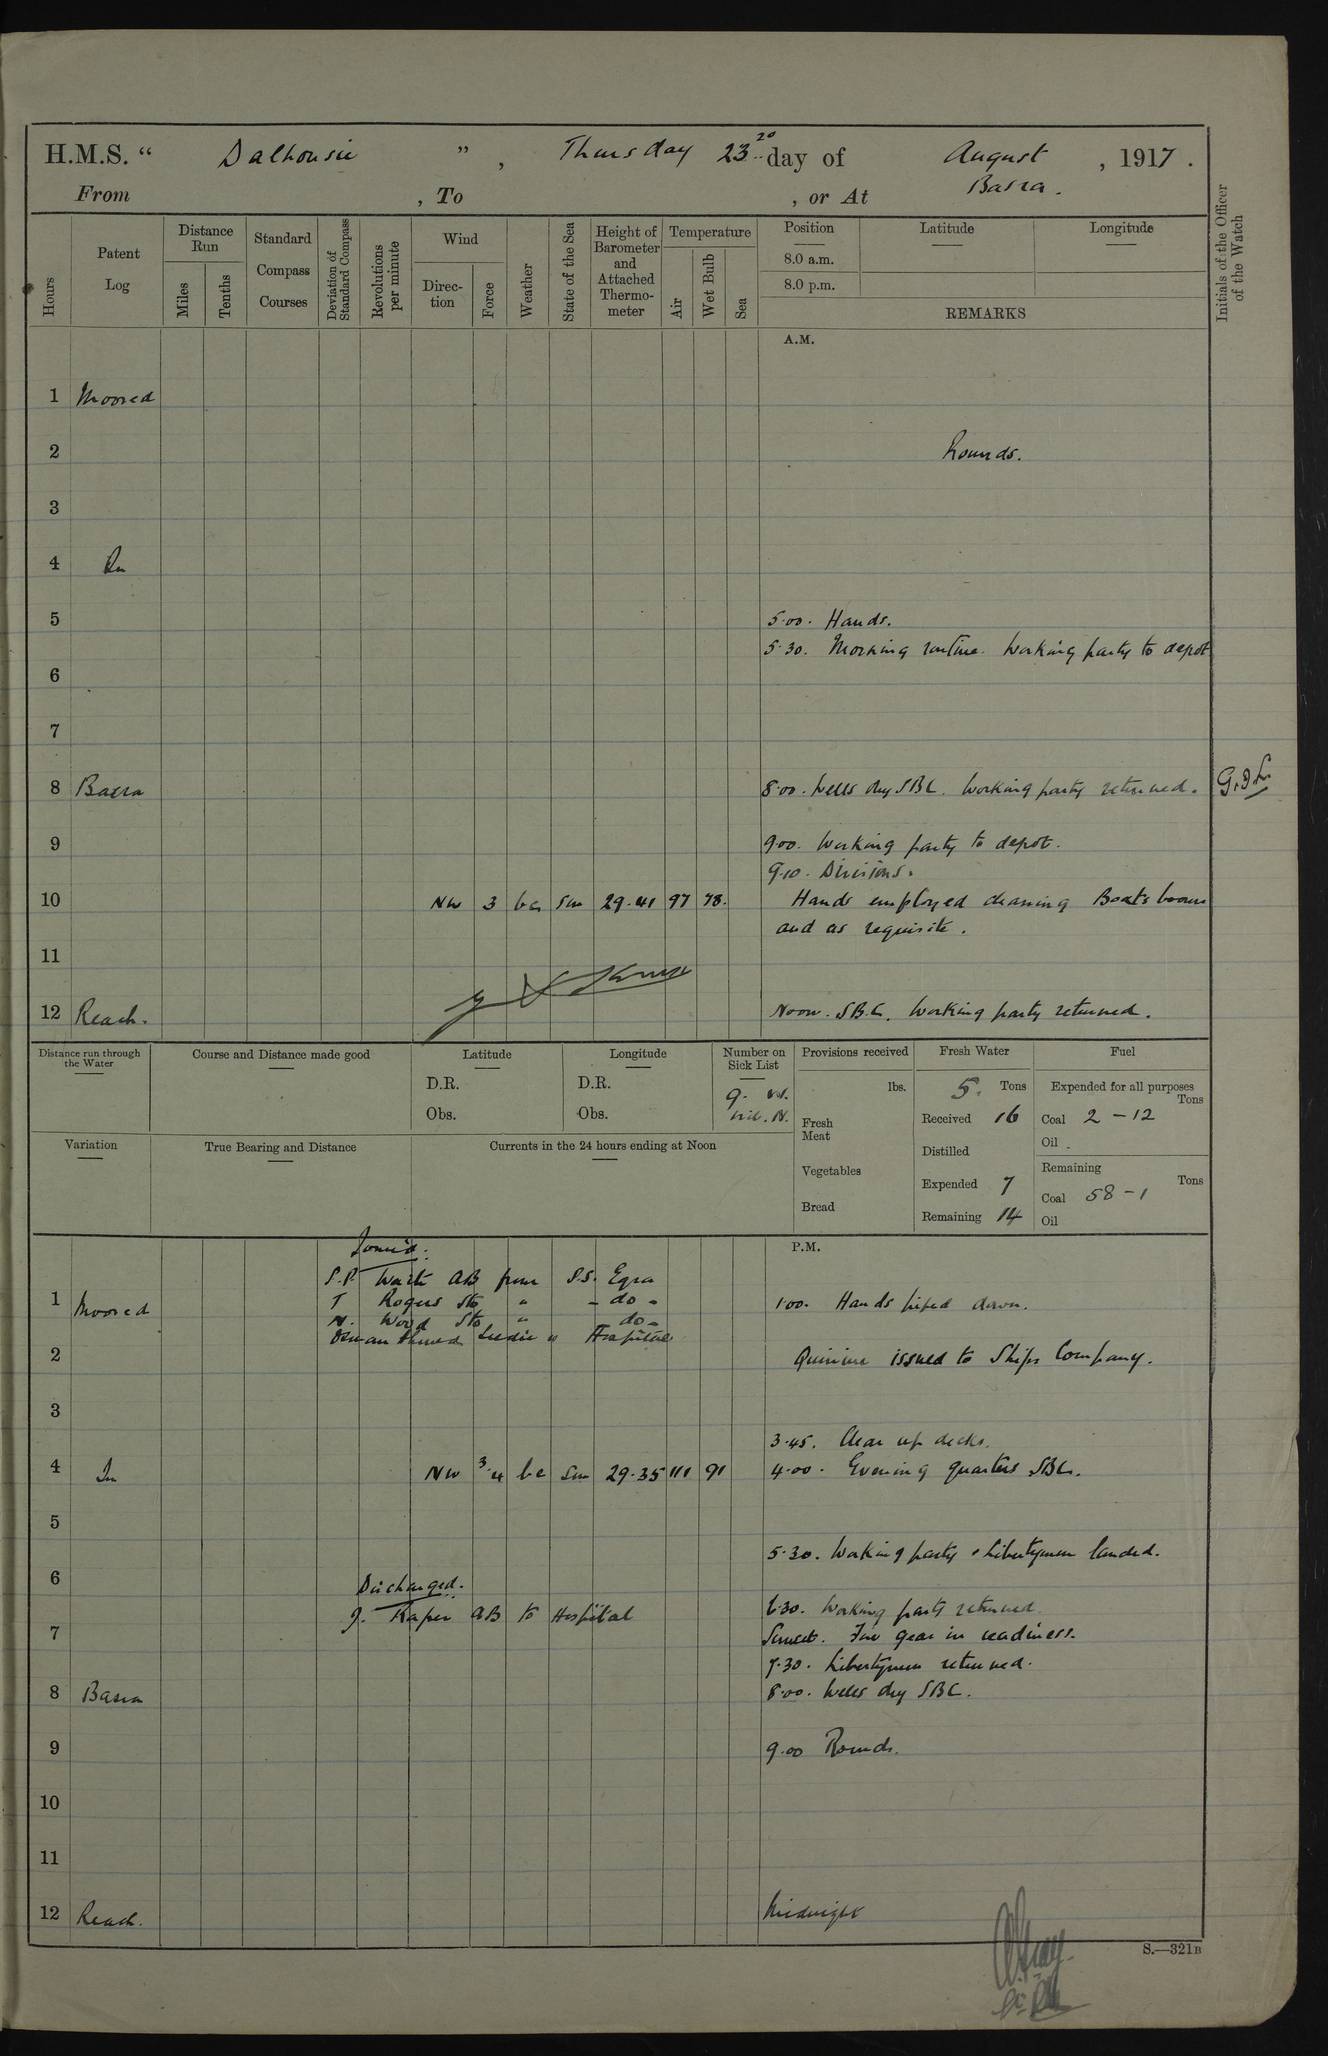 H.M.S. “ Dalhousie ” , Thursday 23 day of August , 1917 .
From , To , or At Basra .
Hours
Patent Log
Distance Run
Miles
Tenths
Standard Compass Courses
Deviation of Standard Compass
Revolutions per minute
Wind
Direction
Force
Weather
State of the Sea
Height of Barometer and Attached Thermometer
Temperature
Air
Wet Bulb
Sea
Position
8.0 a.m.
8.0 p.m.
Latitude
Longitude
REMARKS
Initials of the Officer of the Watch
A.M.
1 Moored
2 Rounds.
3
4 In
5 5.00. Hands.
5.30. Morning routine. Working party to depot
6
7
8 Basra 8.00. Wells dry SBC. Working party returned.
9 9.00. Working party to depot.
9.10. Divisions.
10 NW 3 bc Sm 29.41 97 78. Hands employed cleaning Boats boom
and as requisite.
11
12 Reach. Noon. SBC. Working party returned.
Distance run through the Water
Course and Distance made good
Latitude
D.R.
Obs.
Longitude
D.R.
Obs.
Number on Sick List
9.
nil. N.
Provisions received
lbs.
Fresh Meat
Vegetables
Bread
Fresh Water
5. Tons
Received 16
Distilled
Expended 7
Remaining 14
Fuel
Expended for all purposes
Tons
Coal 2 - 12
Oil
Remaining
Tons
Coal 58 - 1
Oil
Variation
True Bearing and Distance
Currents in the 24 hours ending at Noon
P.M.
Joined.
S.P. Waite AB from S.S. Egra
1 Moored T Rogers Sto " - do - 1.00. Hands piped down.
N. Wood Sto " do -
Hospital
2 Quinine issued to Ships Company.
3
3.45. Clear up decks.
4 In NW 3.4 bc Sm 29.35 111 91 4.00. Evening quarters SBC.
5
5.30. Working party & Libertymen landed.
6
Discharged.
J. Raper AB to Hospital
6.30. Working party returned.
7 Sunset. Fire gear in readiness.
7.30. Libertymen returned.
8 Basra 8.00. Wells dry SBC.
9 9.00 Rounds.
10
11
12 Reach. Midnight
S.—321B